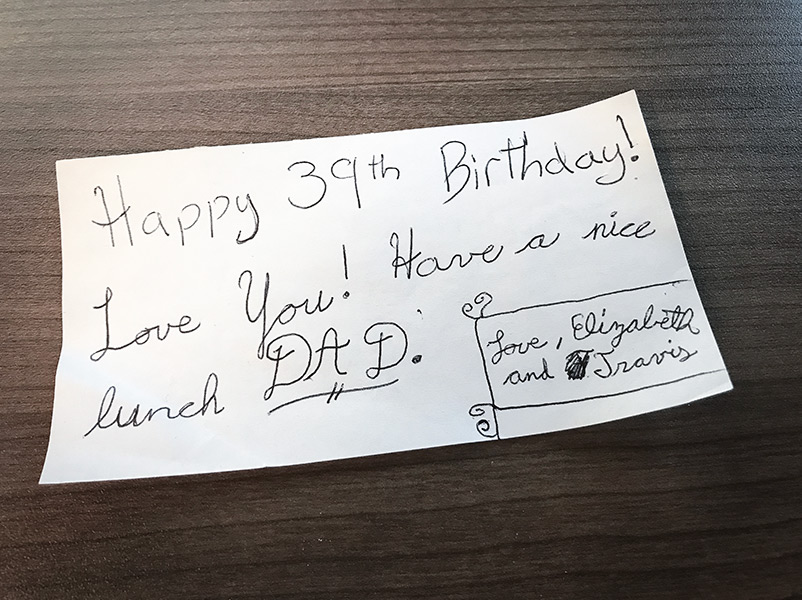 Happy 39th Birthday!
Love You! Have a nice
lunch DAD.
Love, Elizabeth
and Travis